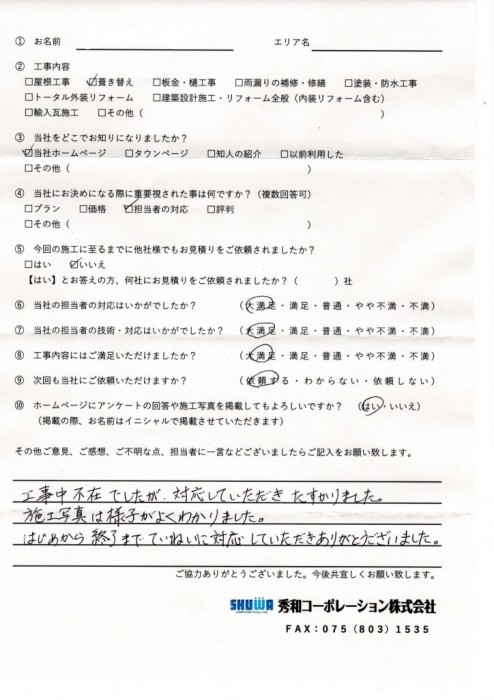 ① お名前 エリア名
② 工事内容
□屋根工事 ☑葺き替え □板金・樋工事 □雨漏りの補修・修繕 □塗装・防水工事
□トータル外装リフォーム □建築設計施工・リフォーム全般（内装リフォーム含む）
□輸入瓦施工 □その他（ ）
③ 当社をどこでお知りになりましたか？
☑当社ホームページ □タウンページ □知人の紹介 □以前利用した
□その他（ ）
④ 当社にお決めになる際に重要視された事は何ですか？（複数回答可）
□プラン □価格 ☑担当者の対応 □評判
□その他（ ）
⑤ 今回の施工に至るまでに他社様でもお見積りをご依頼されましたか？
□はい ☑いいえ
【はい】とお答えの方、何社にお見積りをご依頼されましたか？（ ）社
⑥ 当社の担当者の対応はいかがでしたか？ （大満足・満足・普通・やや不満・不満）
⑦ 当社の担当者の技術・対応はいかがでしたか？ （大満足・満足・普通・やや不満・不満）
⑧ 工事内容にはご満足いただけましたか？ （大満足・満足・普通・やや不満・不満）
⑨ 次回も当社にご依頼いただけますか？ （依頼する・わからない・依頼しない）
⑩ ホームページにアンケートの回答や施工写真を掲載してもよろしいですか？ （はい・いいえ）
（掲載の際、お名前はイニシャルで掲載させていただきます）
その他ご意見、ご感想、ご不明な点、担当者に一言などございましたらご記入をお願い致します。
工事中不在でしたが、対応していただきたすかりました。
施工写真は様子がよくわかりました。
はじめから終了までていねいに対応していただきありがとうございました。
ご協力ありがとうございました。今後共宜しくお願い致します。
SHUWA 秀和コーポレーション株式会社
FAX：075（803）1535